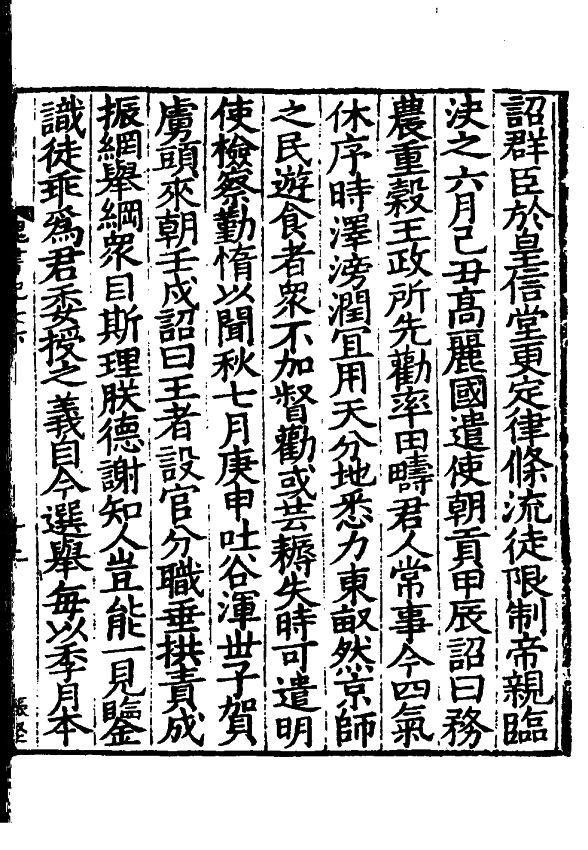 詔群臣於皇信堂更定律條流徒限制帝親臨
決之六月己丑高麗國遣使朝貢甲辰詔曰務
農重穀王政所先勸率田疇君人常事今四氣
休序時澤滂潤冝用天分地悉力東畝然京師
之民遊食者衆不加督勸或芸耨失時可遣明
使檢察勤惰以聞秋七月庚申吐谷渾丗子賀
虜頭來朝壬戌詔曰王者設官分職垂拱責成
振網舉綱衆目斯理朕德謝知人豈能一見鑒
識徒乖爲君委授之義自今選舉每以季月本